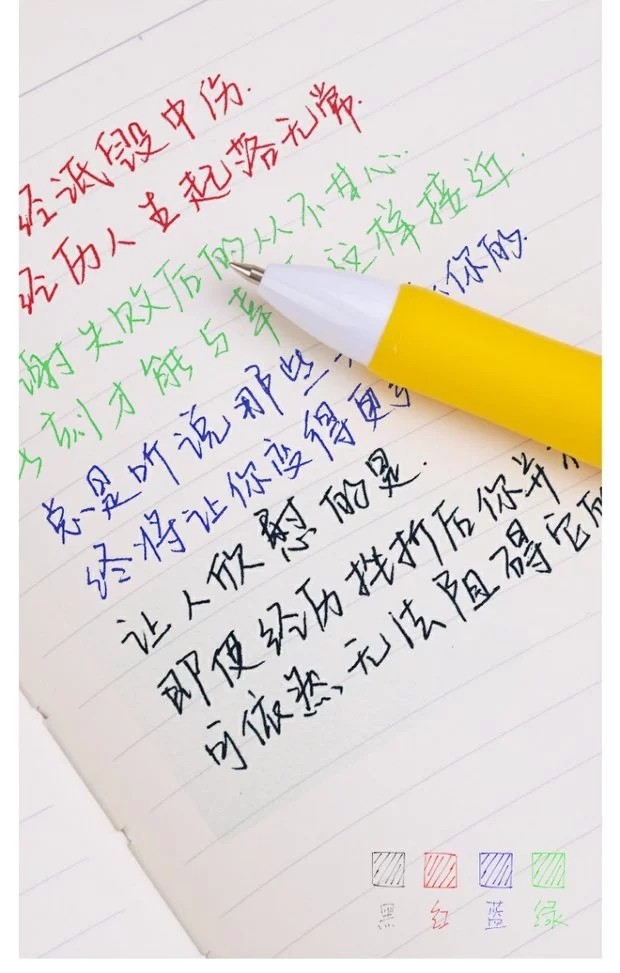 经诋毁中伤.
经历人生起落无常.
谢失败后的从不甘心.
刻才能与幸 这样接近.
总是听说那些 你的
终将让你变得更
让人欣慰的是.
即便经历挫折后你并
可依然无法阻碍它
黑 红 蓝 绿